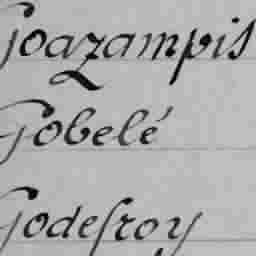 Goazampis
Gobelé
Godefroy